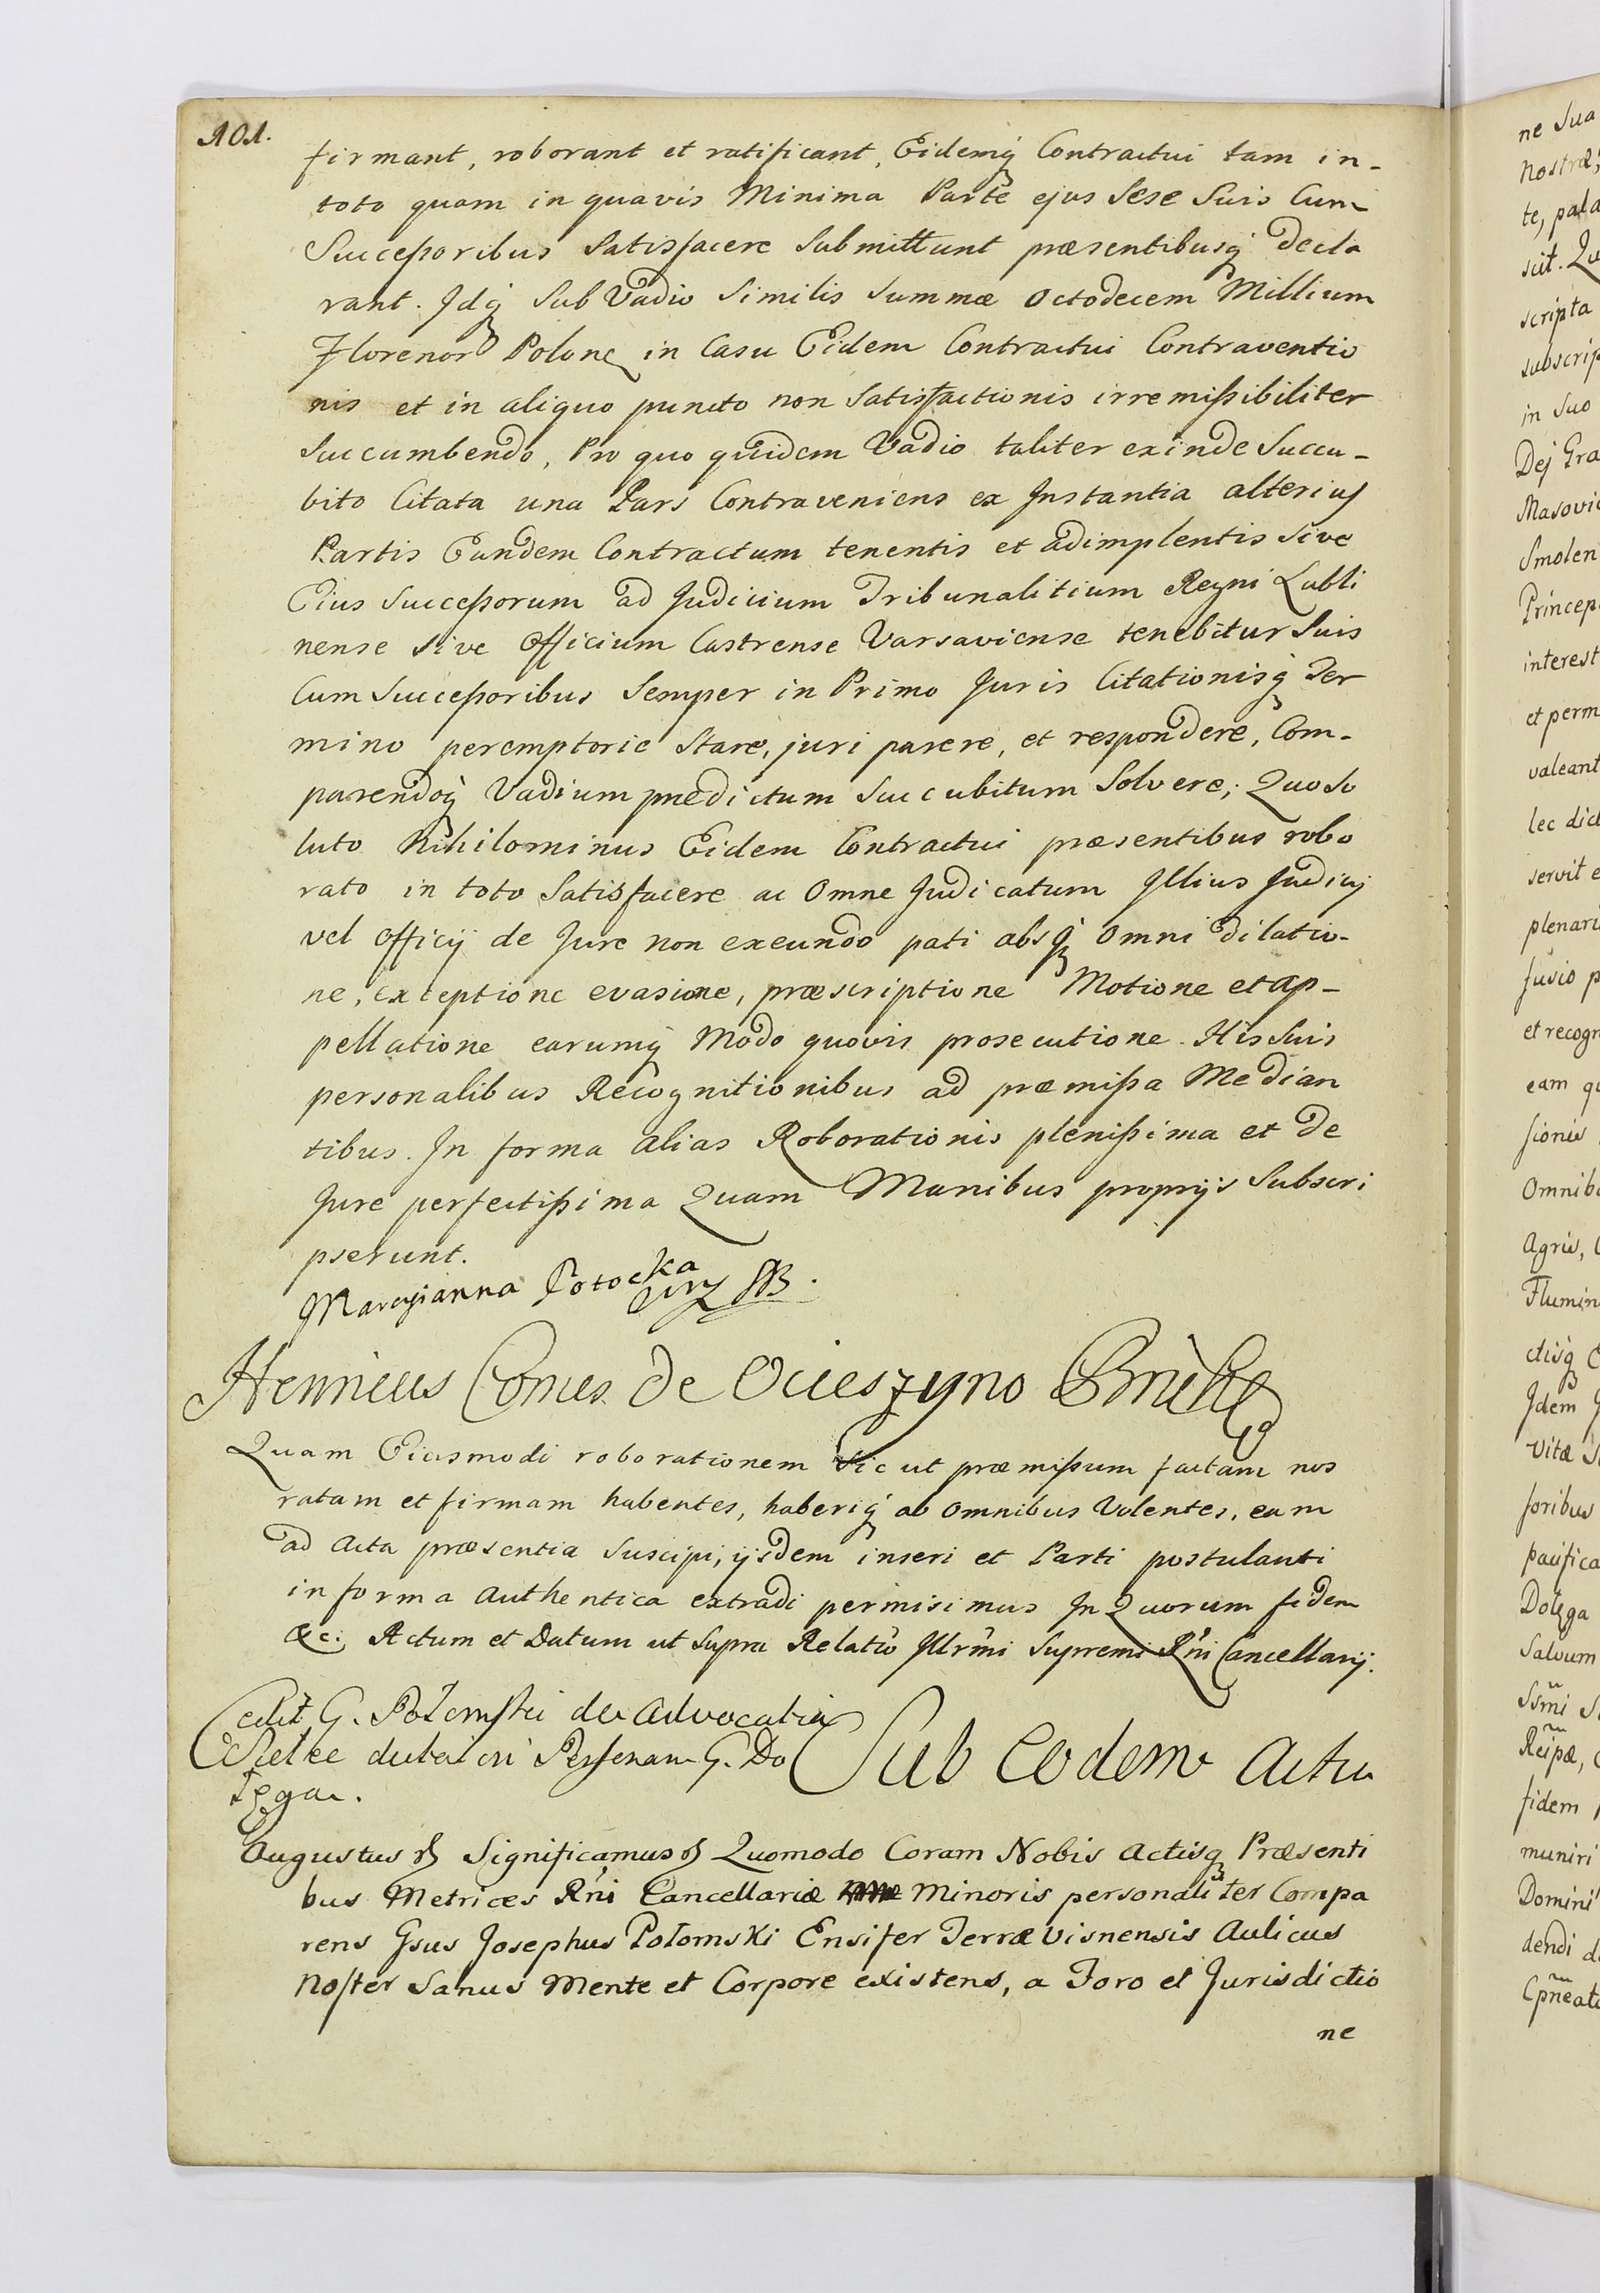 101.
firmant, roborant et ratificant, Eidemq̃ Contractui tam in-
toto quam in quavis Minima Parte ejus Sese Suis Cum
Succeßoribus Satisfacere Submittunt præsentibusq̃ decla
rant. Jdq̃ Sub Vadio Similis Summæ Octodecem Millium
Florenor Polonc in Casu Eidem Contractui Contraventio
nis et in aliquo puncto non Satisfactionis irremißibiliter
Succumbendo, Pro quo quidem Vadio taliter exinde Succu-
bito Citata una Pars Contraveniens ex Jnstantia alterius
Partis Eundem Contractum tenentis et adimplentis Sive
Eius Succeßorum ad Judicium Tribunalitium Regni Lubli
nense Sive Officium Castrense Varsaviense tenebitur Suis
Cum Succeßoribus Semper in Primo Juris Citationisq̃ Ter
mino peremptorie Stare, juri parere, et respondere, Com-
parendoq̃ Vadium prædictum Succubitum Solvere; Quo So
luto Nihilominus Eidem Contractui præsentibus robo
rato in toto Satisfacere ac Omne Judicatum Jllius Judicij
vel Officij de Jure non exeundo pati absq̃ Omni dilatio-
ne, exceptione evasione, præscriptione Motione et ap-
pellatione earumq̃ Modo quovis prosecutione. His Suis
personalibus Recognitionibus ad præmißa Median
tibus. Jn forma alias Roborationis plenißima et de
Jure perfectißima Quam Manibus proprijs Subscri
pserunt.
Maryianna Potocka
Henricus Comes de Ocieszyno Brühl
Quam Eiusmodi roborationem Sic ut præmißum factam nos
ratam et firmam habentes, haberiq̃ ab Omnibus Volentes, eam
ad Acta præsentia Suscipi, ijsdem inseri et Parti postulanti
in forma Authentica extradi permisimus Jn Quorum fidem
&c. Actum et Datum ut Supra Relatio Jllrm̃i Supremi Rñi Cancellarij.
Cedit G. Potomski de Advocatia
in Personam G. Do
łęga.
Sub Eodem Actu
Augustus Significamus Quomodo Coram Nobis Actisq̃ Præsenti
bus Metrices Rñi Cancellariæ Minoris personaliter Compa
rens Gsus Josephus Potomski Ensifer Terræ Visnensis Aulicus
Noster Sanus Mente et Corpore existens, a Foro et Jurisdictio
ne
ne Sua
Nostræ,
te, pala
scit. Qu
scripta
subscrip
in Suo
Dej Gra
Masovi
Smolen
Princep
interest
et perm
valeant
lec dict
servit e
plenari
fusio p
et recogn
eam qu
sionis
Omnib
Agris,
Flumin
ctisq̃
Jdem
Vitæ S
foribus
pacifica
Dołęga
Salvum
Ssm̃i
Reipæ,
fidem
muniri
Domini
dendi d